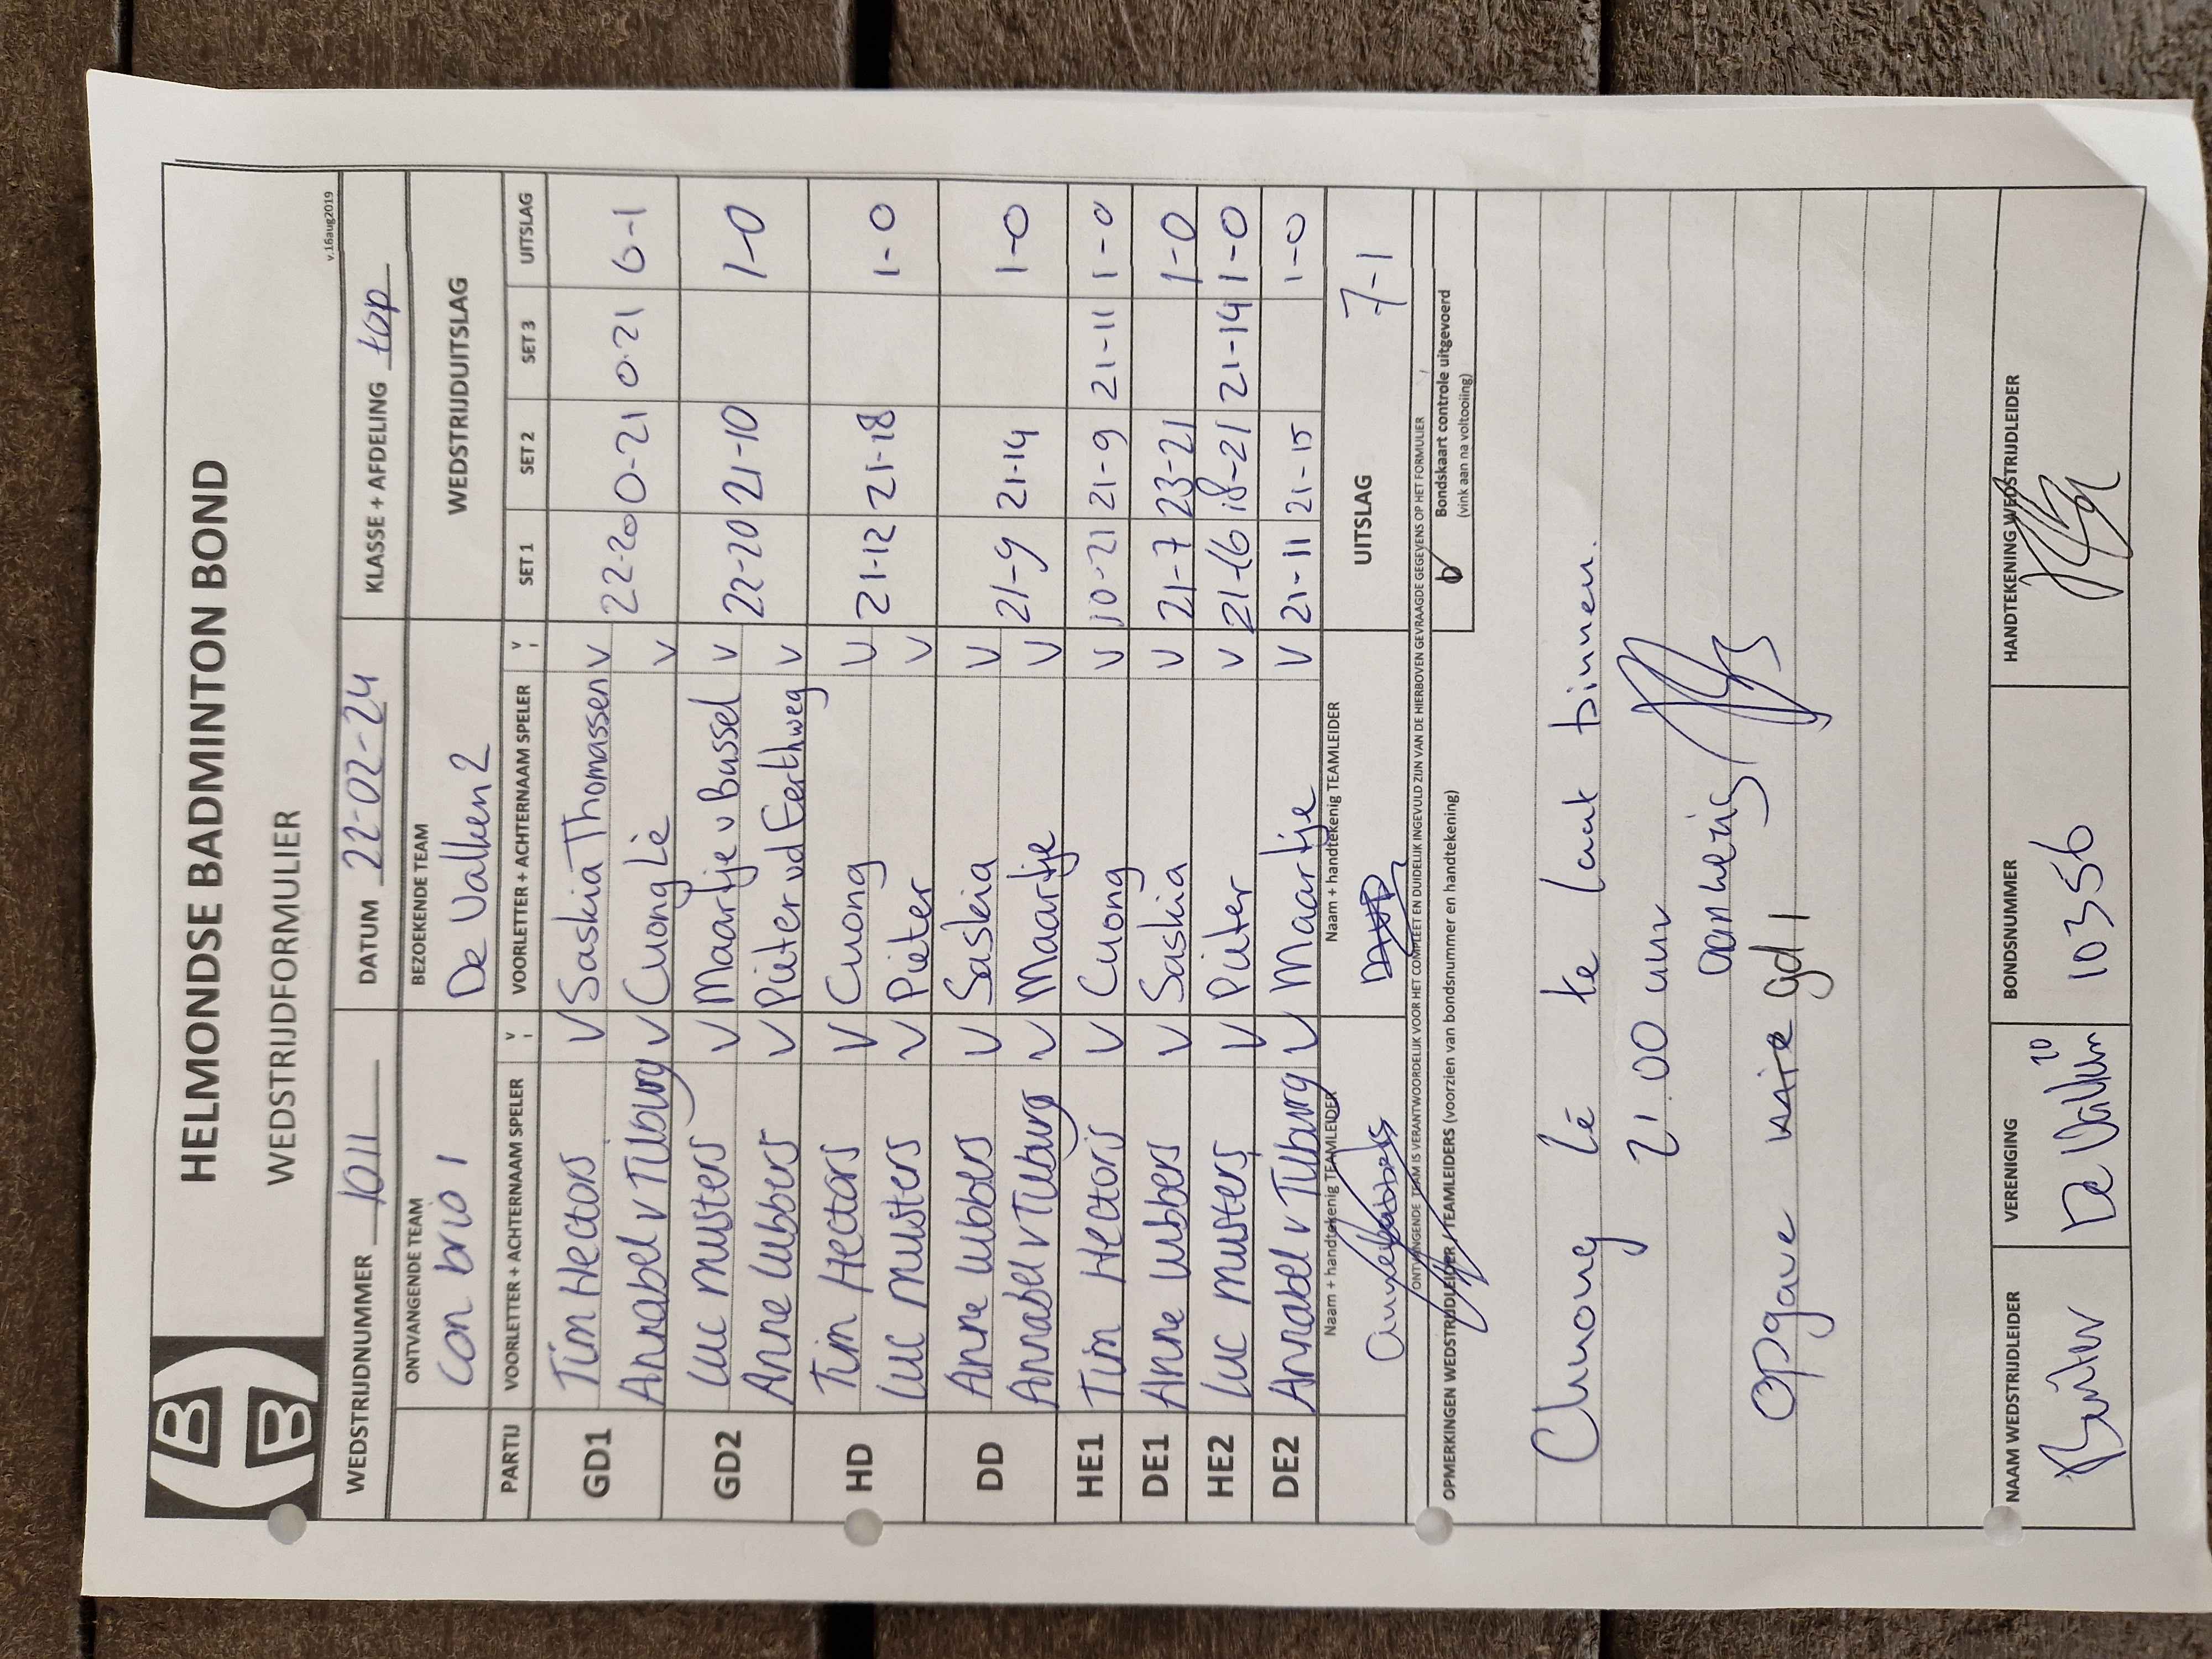 HELMONDSE BADMINTON BOND
WEDSTRIJDFORMULIER
v.16aug2019
WEDSTRIJDNUMMER 1011 DATUM 22-02-24 KLASSE + AFDELING top
ONTVANGENDE TEAM BEZOEKENDE TEAM WEDSTRIJDUITSLAG
con brio 1 De Valken 2
PARTIJ VOORLETTER + ACHTERNAAM SPELER V VOORLETTER + ACHTERNAAM SPELER V SET 1 SET 2 SET 3 UITSLAG
GD1 Tim Hectors V Saskia Thomassen V
Annabel v Tilburg V Cuong Lè V 22-20 0-21 0-21 0-1
GD2 Luc Musters V Maartje v Bussel V
Anne Lubbers V Pieter vd Eerthweg V 22-20 21-10 1-0
HD Tim Hectors V Cuong V
Luc Musters V Pieter V 21-12 21-18 1-0
DD Anne Lubbers V Saskia V
Annabel v Tilburg V Maartje V 21-9 21-14 1-0
HE1 Tim Hectors V Cuong V 10-21 21-9 21-11 1-0
DE1 Anne Lubbers V Saskia V 21-7 23-21 1-0
HE2 Luc Musters V Pieter V 21-16 18-21 21-14 1-0
DE2 Annabel v Tilburg V Maartje V 21-11 21-15 1-0
Naam + handtekenig TEAMLEIDER Naam + handtekenig TEAMLEIDER UITSLAG 7-1
ONTVANGENDE TEAM IS VERANTWOORDELIJK VOOR HET COMPLEET EN DUIDELIJK INGEVULD ZIJN VAN DE HIERBOVEN GEVRAAGDE GEGEVENS OP HET FORMULIER
OPMERKINGEN WEDSTRIJDLEIDER / TEAMLEIDERS (voorzien van bondsnummer en handtekening)
Bondskaart controle uitgevoerd
(vink aan na voltooiing)
Chuong Lé te laat binnen.
21.00 uur
aanwezig
opgave gd 1
NAAM WEDSTRIJDLEIDER VERENIGING BONDSNUMMER HANDTEKENING WEDSTRIJDLEIDER
De Valken 10356